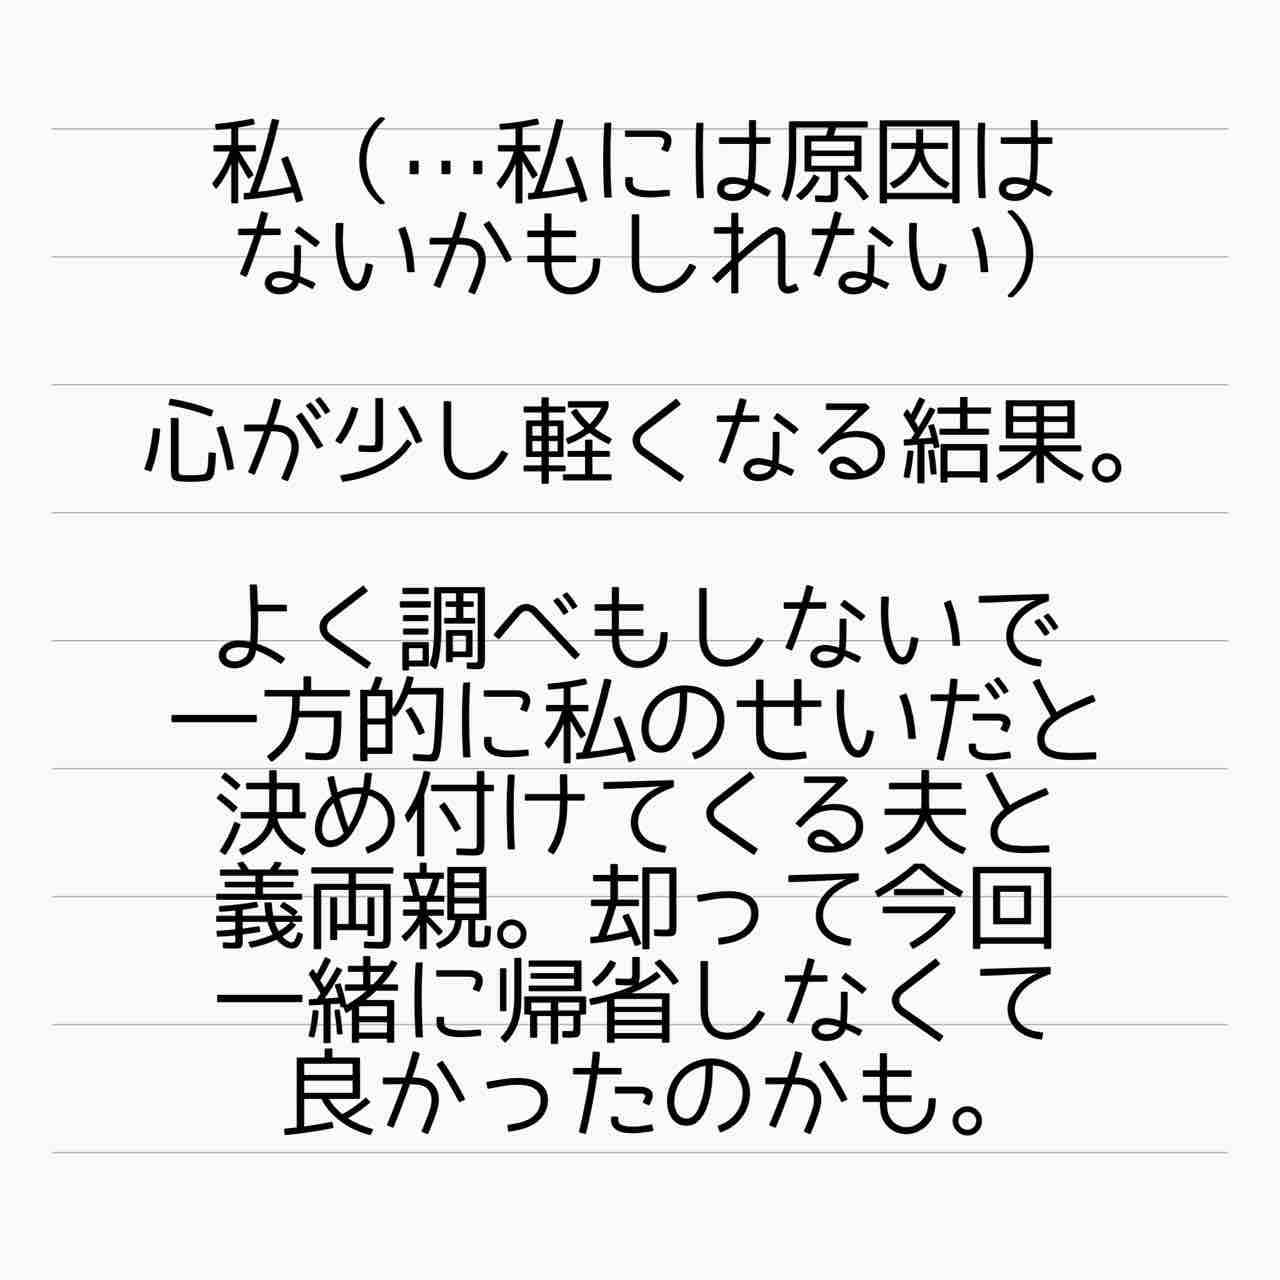 私（…私には原因は
ないかもしれない）
心が少し軽くなる結果。
よく調べもしないで
一方的に私のせいだと
決め付けてくる夫と
義両親。却って今回
一緒に帰省しなくて
良かったのかも。